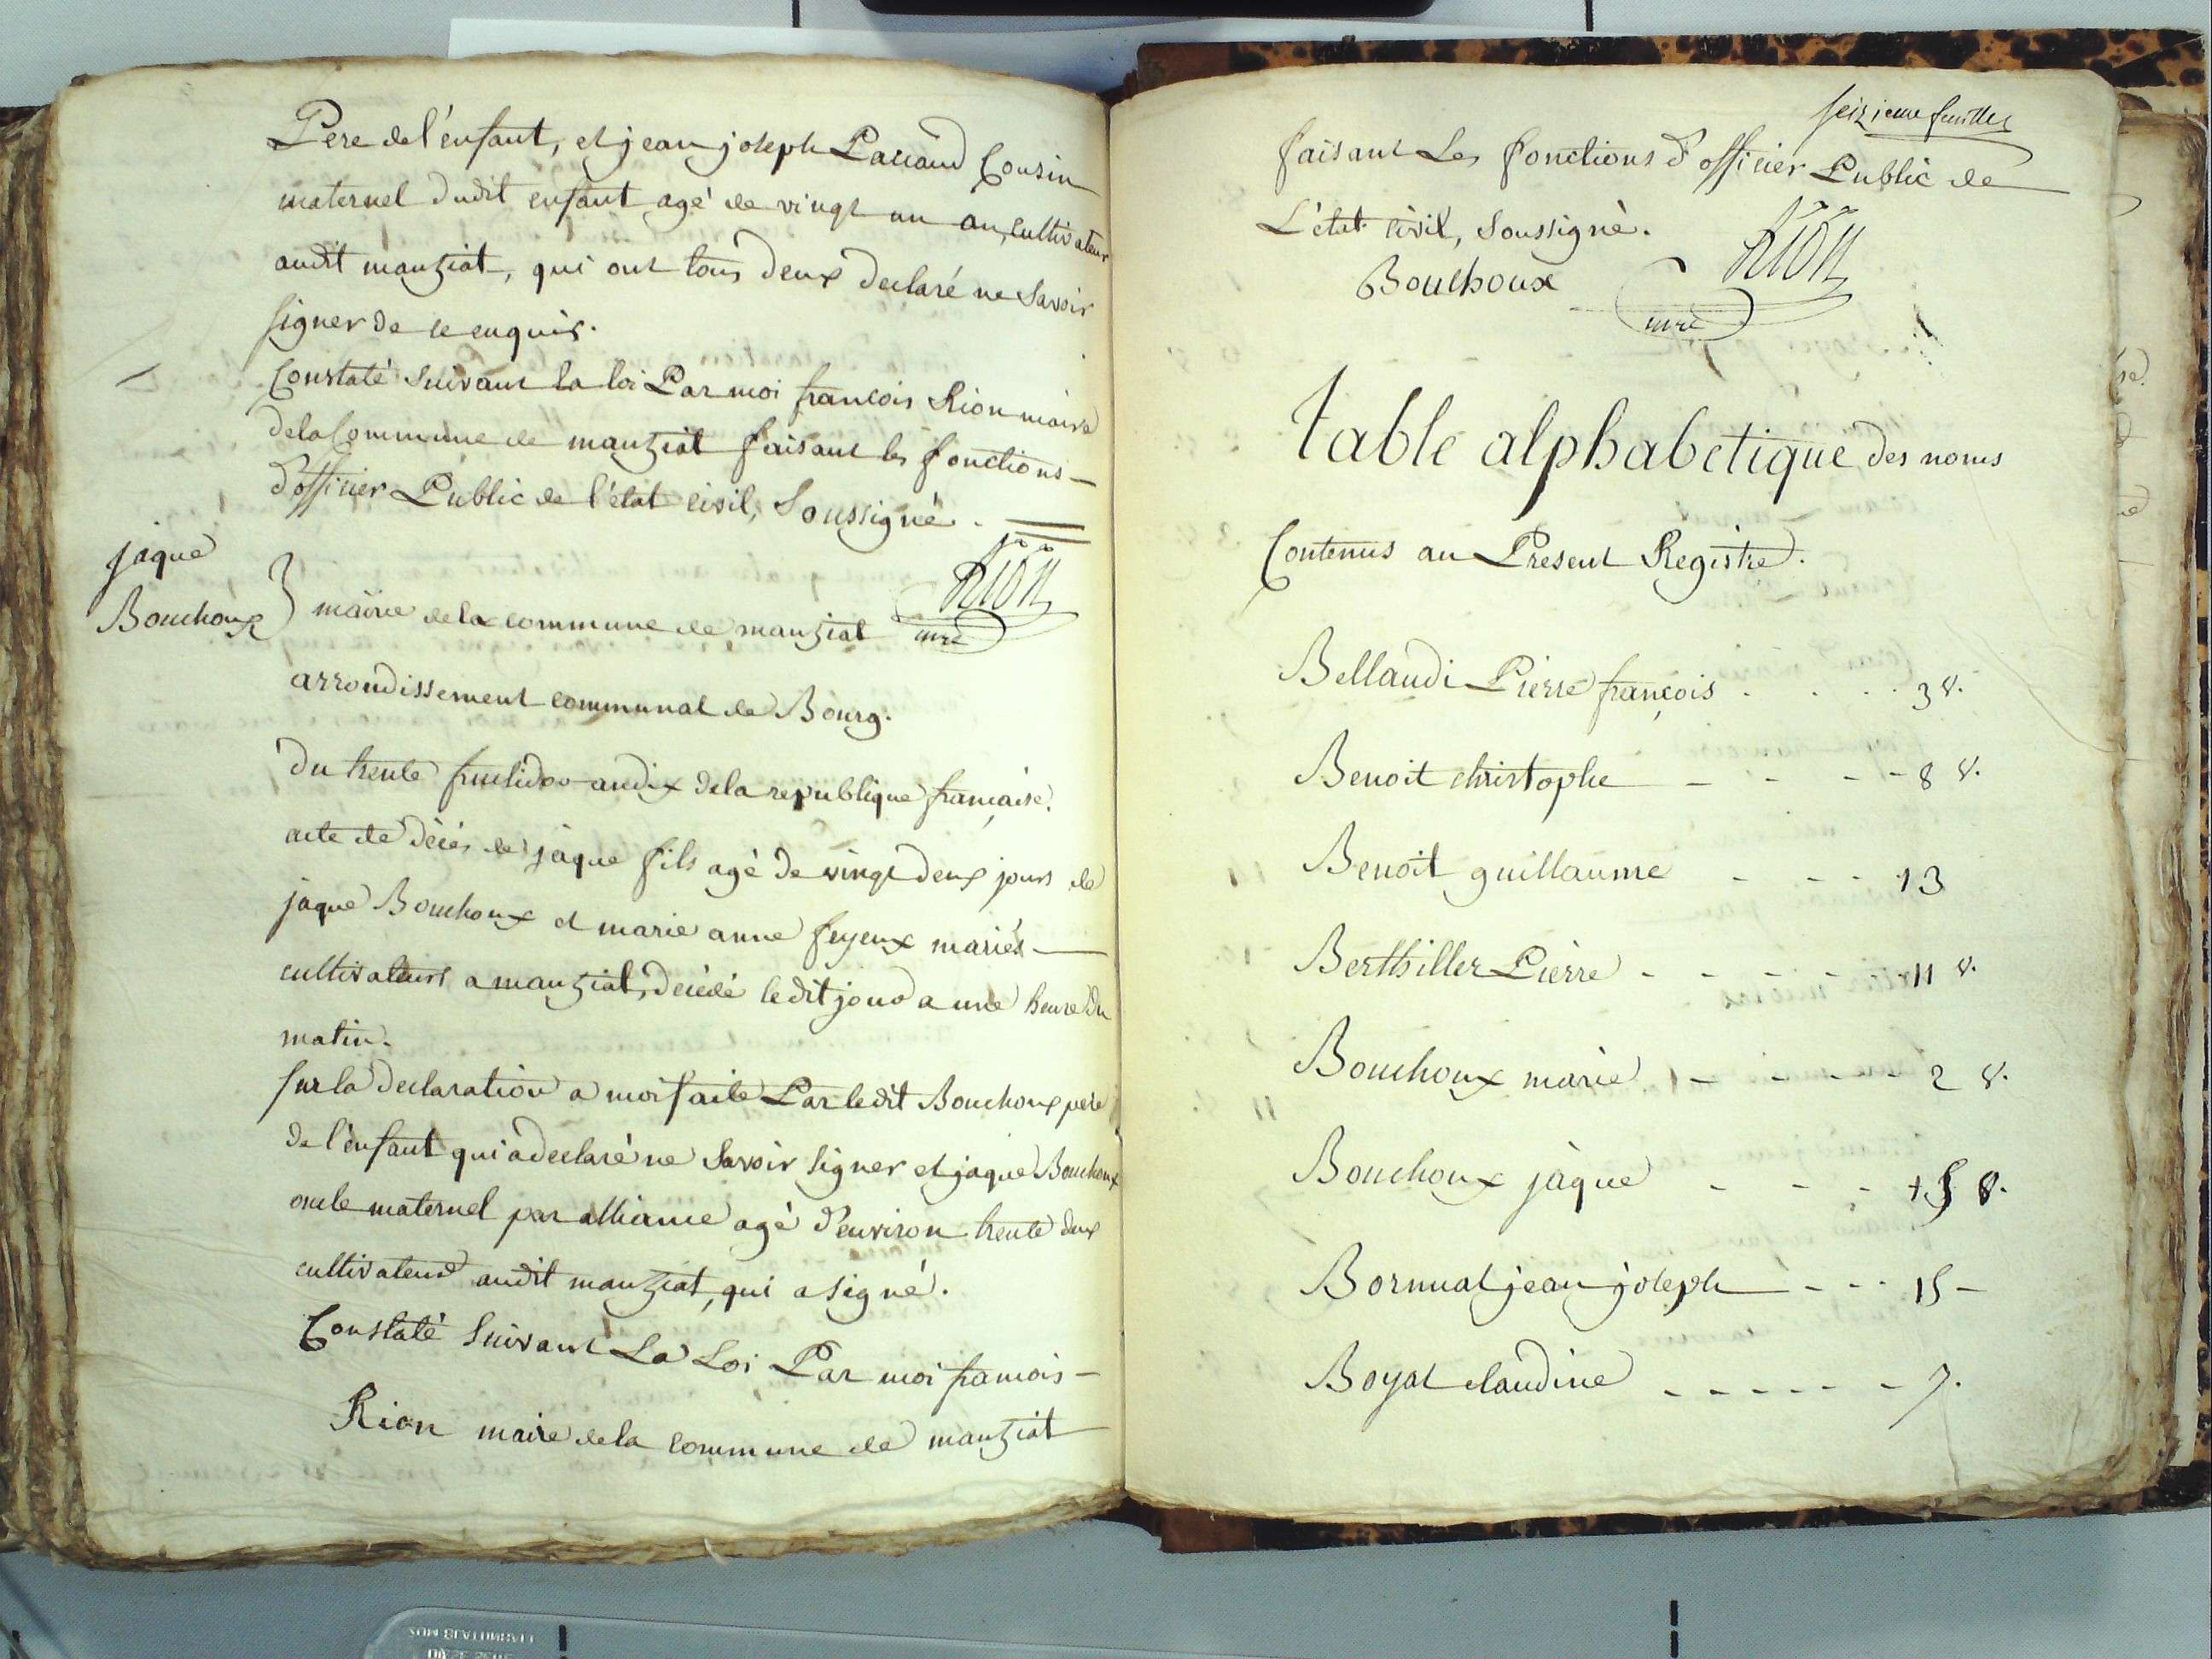 Pere de l'enfant, et jean joseph Cousin
maternel dudit enfant agé de vingt un an, cultivateur
audit manziat, qui ont tous deux declaré ne savoir
signer de ce enquis.
Constaté suivant la loi Par moi françois Rion maire
de la Commune de manziat faisant les fonctions
d'officier Public de l'état civil, Soussigné.
Rion
mre
jaque
Bouchoux
mairie de la commune de manziat
arrondissement communal de Bourg.
du trente fructidor an dix de la republique française.
acte de décès de jàque fils agé de vingt deux jours de
jaque Bouchoux et marie anne feyeux mariés
cultivateurs a manziat, décédé ledit jour a une heure du
matin.
sur la declaration a moi faite Par ledit Bouchoux pere
de l'enfant qui a declaré ne savoir signer et jaque Bouchoux
oncle maternel par alliance agé d'environ trente deux
cultivateur audit manziat, qui a signé.
Constaté suivant La Loi Par moi francois
Rion maire de la commune de manziat
seizieme feuillet
faisant les fonctions d'officier Public de
L'état civil, soussigné.
Bouchoux
Rion
mre
table alphabetique des noms
Contenus au Present Registre.
Bellaudi Pierre françois . . . . 3 v.
Benoit christophe - - - - 8 v.
Benoit guillaume - - - 13
Berthiller Pierre - - - - 11 v.
Bouchoux marie - - - - 2 v.
Bouchoux jàque - - - 15 v.
Bornuat jean joseph - - - 15 -
Boyat claudine - - - - - - 7.